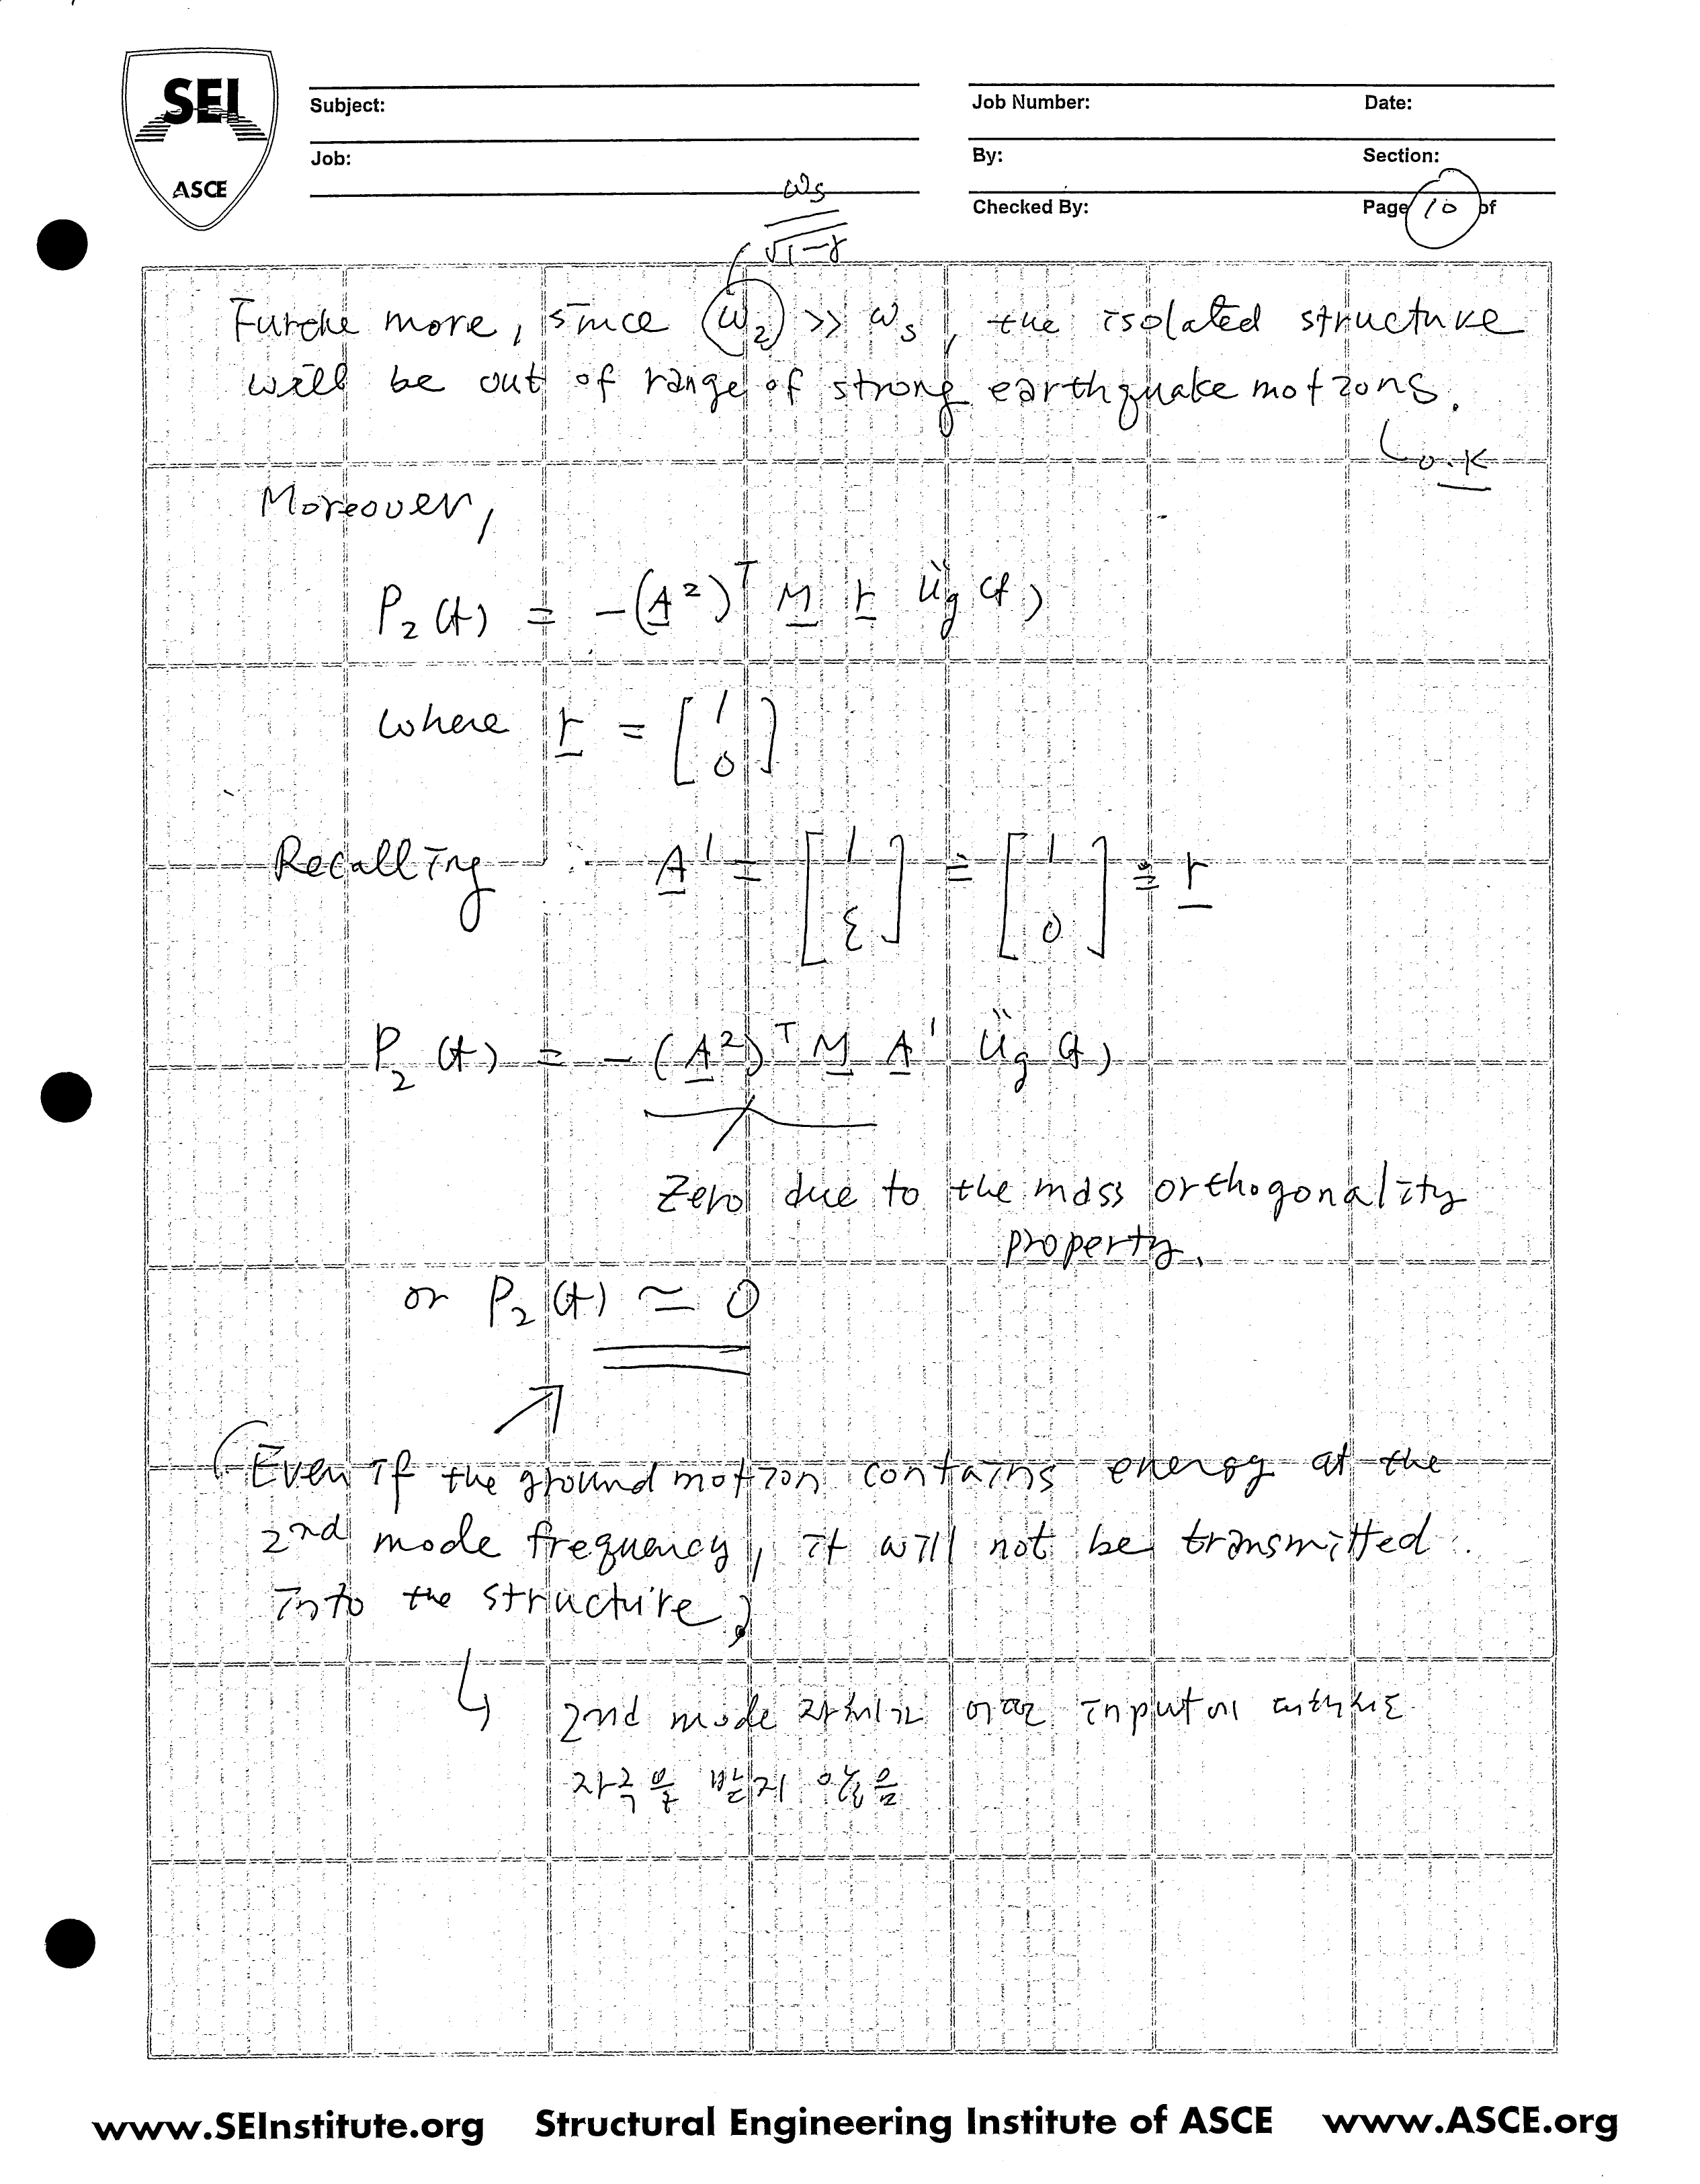 SEI
ASCE
Subject:
Job:
Job Number:
Date:
By:
Section:
Checked By:
Page 10 of
ωs
√1-γ
Furthe more, since ω2 >> ωs, the isolated structure
will be out of range of strong earthquake motions.
O.K
Moreover,
P2(t) = -(A²)ᵀ M r üg(t)
where r = [1 0]
Recalling : A¹ = [1 ε] ≅ [1 0] ≅ r
P2(t) = -(A²)ᵀ M A¹ üg(t)
Zero due to the mass orthogonality
property.
or P2(t) ≃ 0
(Even if the ground motion contains energy at the
2nd mode frequency, it will not be transmitted
into the structure)
2nd mode 자체가 input에
자극을 받지 않음
www.SEInstitute.org Structural Engineering Institute of ASCE www.ASCE.org